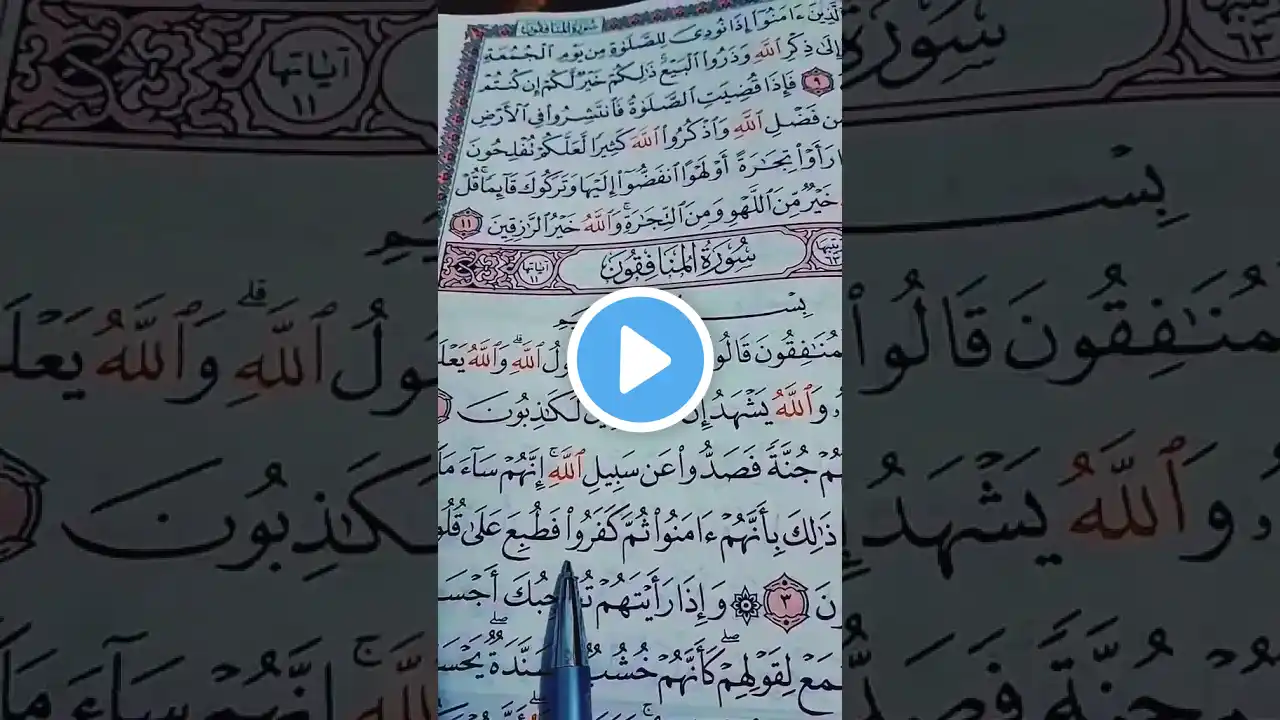 سُورَةُ المُنَافِقُونَ
ٱلَّذِينَ ءَامَنُوٓا۟ إِذَا نُودِىَ لِلصَّلَوٰةِ مِن يَوْمِ ٱلْجُمُعَةِ
إِلَىٰ ذِكْرِ ٱللَّهِ وَذَرُوا۟ ٱلْبَيْعَ ۚ ذَٰلِكُمْ خَيْرٌ لَّكُمْ إِن كُنتُمْ
٩ فَإِذَا قُضِيَتِ ٱلصَّلَوٰةُ فَٱنتَشِرُوا۟ فِى ٱلْأَرْضِ
مِن فَضْلِ ٱللَّهِ وَٱذْكُرُوا۟ ٱللَّهَ كَثِيرًا لَّعَلَّكُمْ تُفْلِحُونَ
رَأَوْا۟ تِجَـٰرَةً أَوْ لَهْوًا ٱنفَضُّوٓا۟ إِلَيْهَا وَتَرَكُوكَ قَآئِمًا ۚ قُلْ
خَيْرٌ مِّنَ ٱللَّهْوِ وَمِنَ ٱلتِّجَـٰرَةِ ۚ وَٱللَّهُ خَيْرُ ٱلرَّٰزِقِينَ ١١
سُورَةُ المُنَافِقُونَ آياتها ١١
بِسْ
مُنَـٰفِقُونَ قَالُوا۟ ولُ ٱللَّهِ ۗ وَٱللَّهُ يَعْلَ
وَٱللَّهُ يَشْهَدُ إِنَّ لَكَـٰذِبُونَ
جُنَّةً فَصَدُّوا۟ عَن سَبِيلِ ٱللَّهِ ۚ إِنَّهُمْ سَآءَ مَا
ذَٰلِكَ بِأَنَّهُمْ ءَامَنُوا۟ ثُمَّ كَفَرُوا۟ فَطُبِعَ عَلَىٰ قُلُو
ونَ ٣ ۞ وَإِذَا رَأَيْتَهُمْ تُعْجِبُكَ أَجْسَ
مَعْ لِقَوْلِهِمْ ۖ كَأَنَّهُمْ خُشُبٌ مُّسَنَّدَةٌ ۖ يَحْسَ